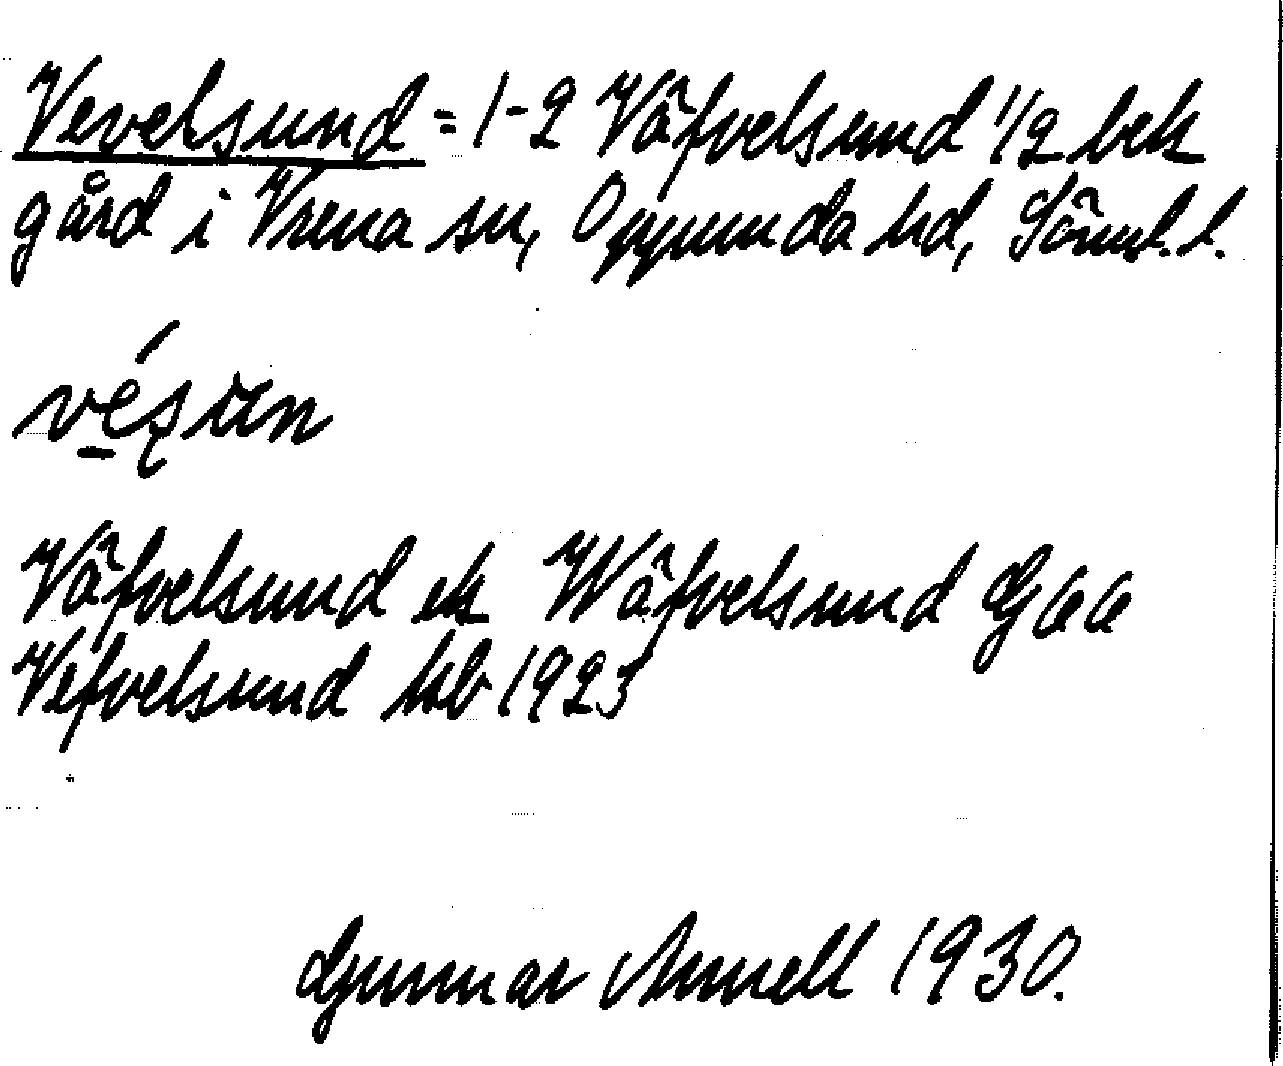 Vevelsund = 1-2 Väfvelsund 1/2 bek
gård i Vrena sn, Oppunda hd, Sörml. l.
Väfvelsund ek Wäfvelsund G66
Vefvelsund hb 1923
Gunnar Arnell 1930.